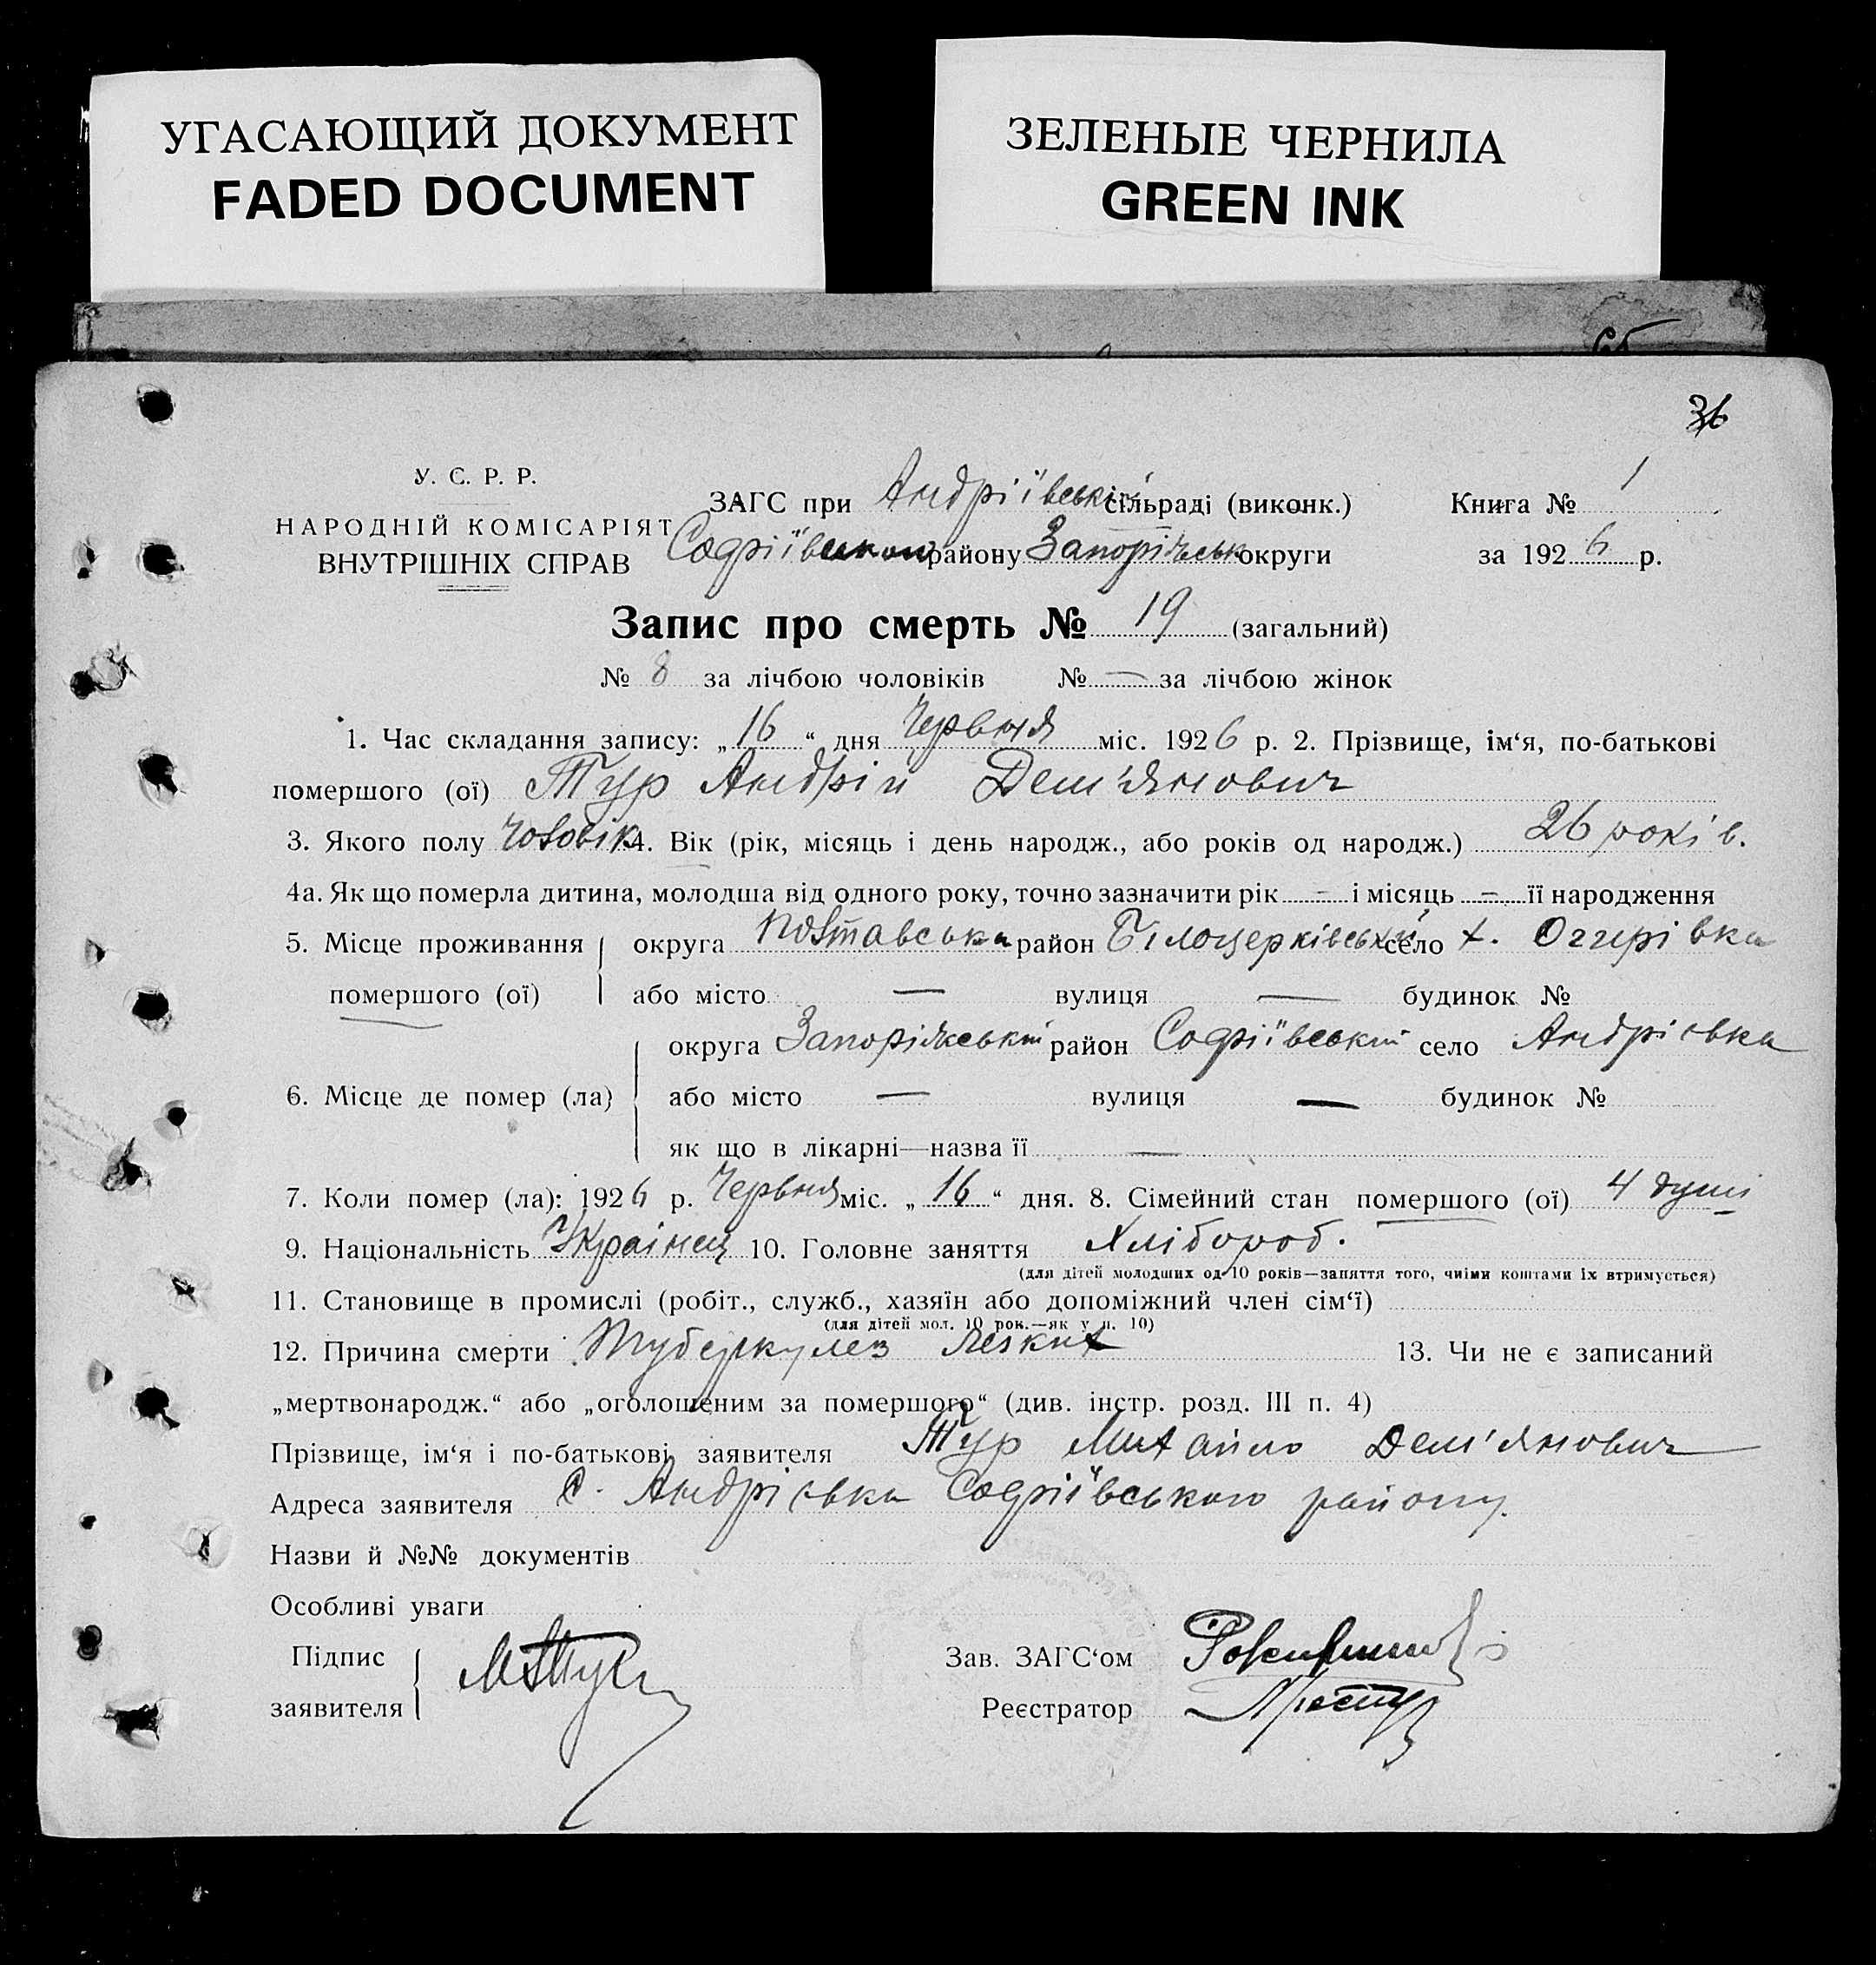 УГАСАЮЩИЙ ДОКУМЕНТ
FADED DOCUMENT
ЗЕЛЕНЫЕ ЧЕРНИЛА
GREEN INK
36
У. С. Р. Р.
НАРОДНІЙ КОМІСАРІЯТ
ВНУТРІШНІХ СПРАВ
ЗАГС при Андріївській сільраді (виконк.) Книга № 1
Софіївського району Запоріжськ округи за 1926 р.
Запис про смерть № 19 (загальний)
№ 8 за лічбою чоловіків № — за лічбою жінок
1. Час складання запису: „16“ дня Червня міс. 1926 р. 2. Прізвище, ім‘я, по-батькові
помершого (ої) Тур Андрій Дем'янович
3. Якого полу чоловік 4. Вік (рік, місяць і день народж., або років од народж.) 26 років.
4а. Як що померла дитина, молодша від одного року, точно зазначити рік — і місяць — її народження
5. Місце проживання помершого (ої) округа Полтавська район Білоцерківський село х.
або місто — вулиця — будинок №
6. Місце де помер (ла) округа Запоріжський район Софіївський село Андрієвка
або місто — вулиця — будинок №
як що в лікарні—назва її —
7. Коли помер (ла): 1926 р. Червня міс. „16“ дня. 8. Сімейний стан помершого (ої) 4 душі
9. Національність Українец 10. Головне заняття Хлібороб.
(для дітей молодших од 10 років—заняття того, чиїми коштами їх втримується)
11. Становище в промислі (робіт., служб., хазяїн або допоміжний член сім‘ї)
(для дітей мол. 10 рок.—як у п. 10)
12. Причина смерти Туберкулез легких 13. Чи не є записаний
„мертвонародж.“ або „оголошеним за помершого“ (див. інстр. розд. III п. 4)
Прізвище, ім‘я і по-батькові заявителя Тур Михайло Дем'янович
Адреса заявителя с. Андрієвка Софіївського району.
Назви й №№ документів
Особливі уваги
Підпис заявителя М Тур
Зав. ЗАГС‘ом
Реєстратор